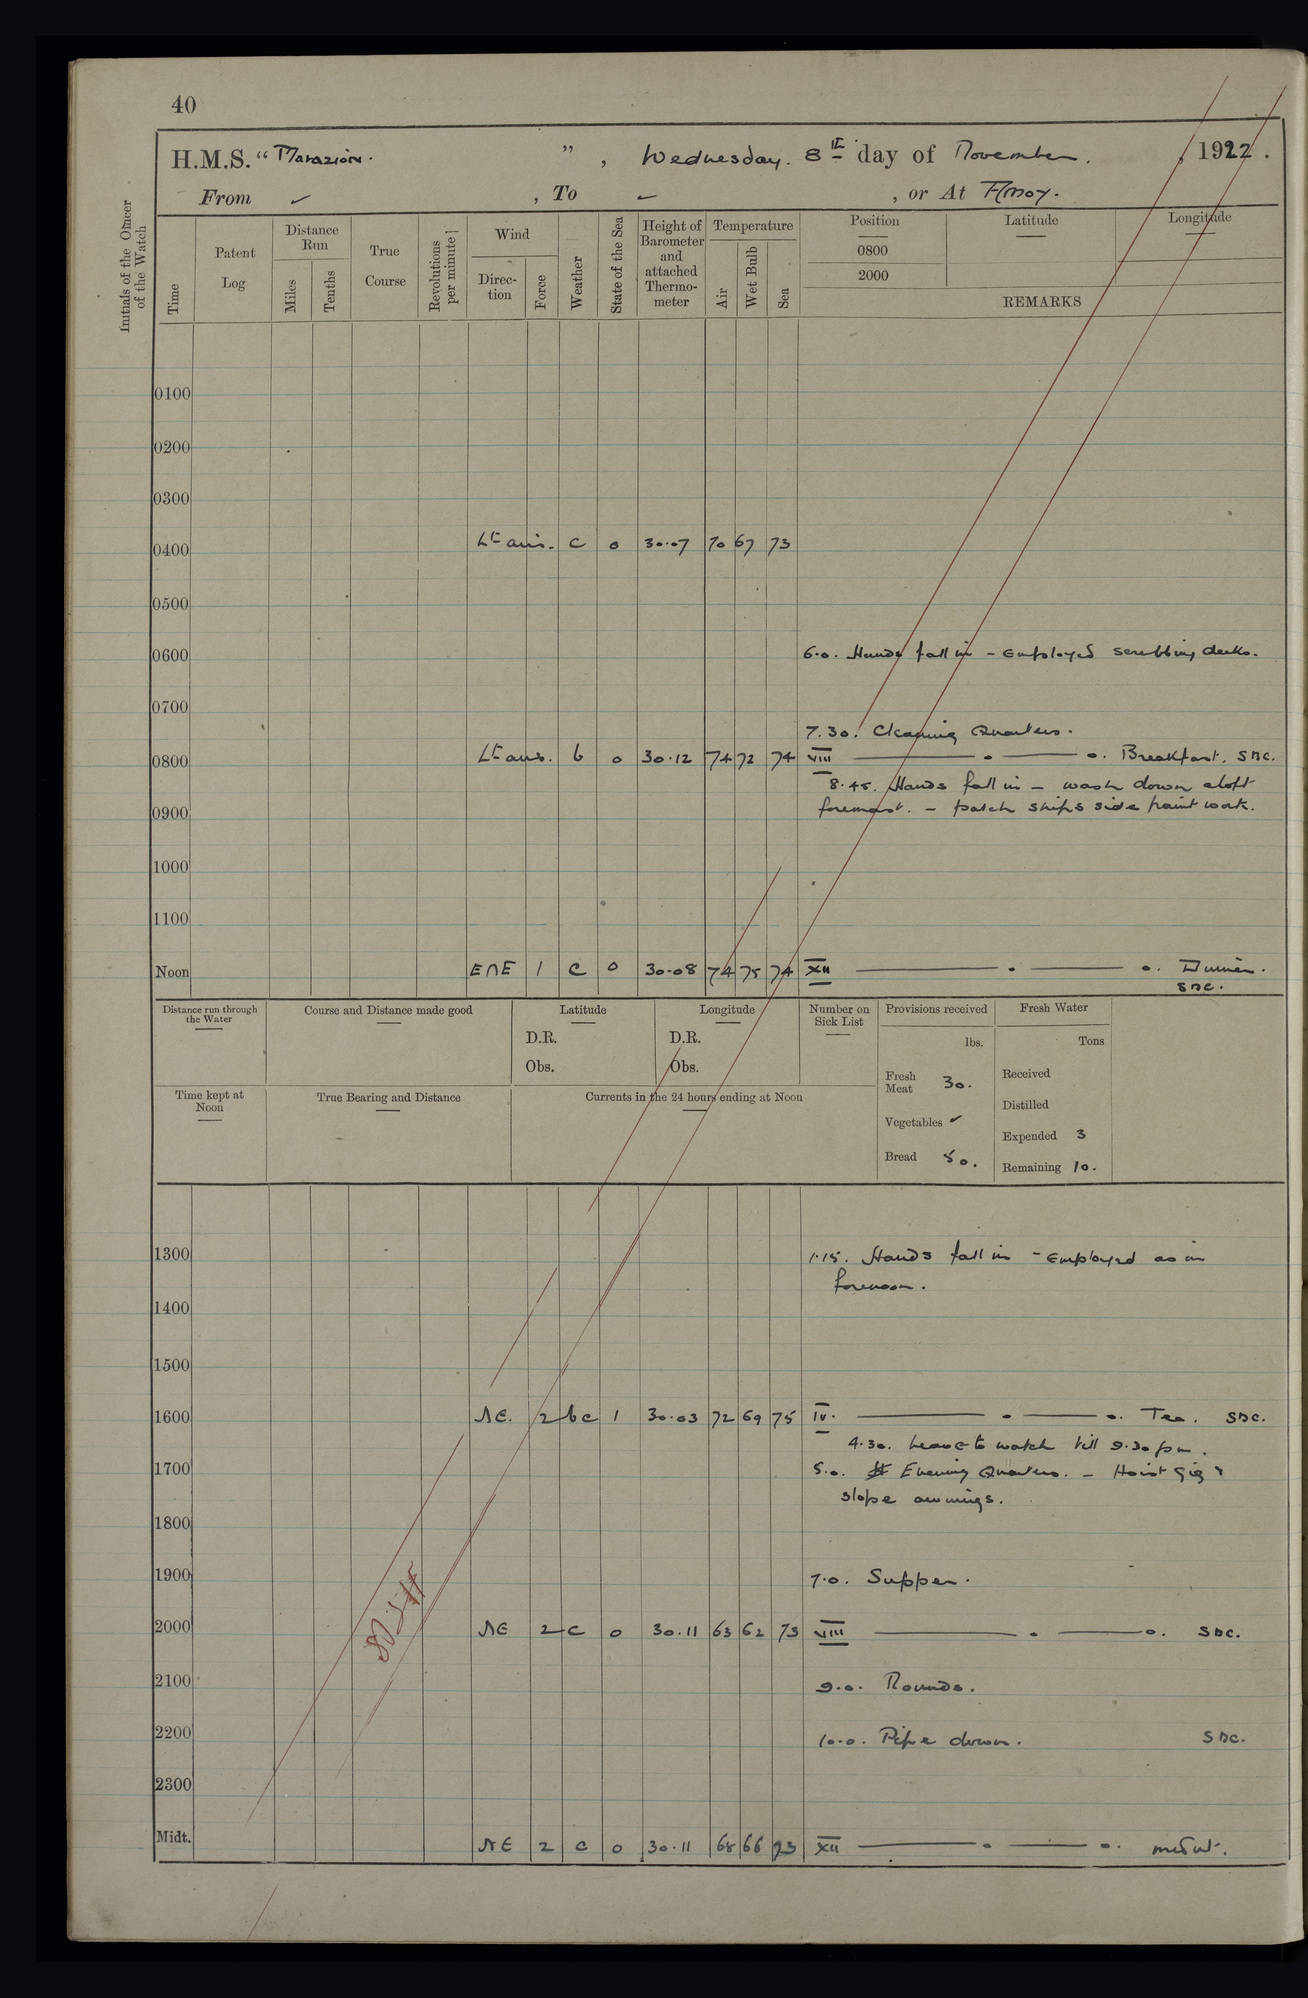 40
H.M.S. "Marazion." , Wednesday. 8th day of November. , 1922.
From ✓ , To ✓ , or At Amoy.
Initials of the Officer of the Watch
Time
Patent Log
Distance Run
Miles
Tenths
True Course
Revolutions per minute
Wind
Direction
Force
Weather
State of the Sea
Height of Barometer and attached Thermometer
Temperature
Air
Wet Bulb
Sea
Position Latitude Longitude
0800
2000
REMARKS
0100
0200
0300
0400 Lt airs. c 0 30.07 70 67 73
0500
0600 6.0. Hands fall in - employed scrubbing decks.
0700
7.30. Cleaning Quarters.
0800 Lt airs. b 0 30.12 74 72 74 VIII Breakfast. SDC.
8.45. Hands fall in - wash down aloft
0900 foremast. - patch ships side paint work.
1000
1100
Noon ENE 1 c 0 30.08 74 75 74 XII Dinner.
SDC.
Distance run through the Water
Course and Distance made good
Latitude
D.R.
Obs.
Longitude
D.R.
Obs.
Number on Sick List
Provisions received
lbs.
Fresh Meat 30.
Vegetables ✓
Bread 50.
Fresh Water
Tons
Received
Distilled
Expended 3
Remaining 10.
Time kept at Noon
True Bearing and Distance
Currents in the 24 hours ending at Noon
1300 1.15. Hands fall in - employed as in
forenoon.
1400
1500
1600 NE. 2 bc 1 30.03 72 69 75 IV. Tea. SDC.
4.30. Leave to watch till 9.30 pm.
1700 5.0. Evening Quarters. - Hoist gig &
slope awnings.
1800
1900 7.0. Supper.
2000 NE 2 c 0 30.11 63 62 73 VIII SDC.
2100 9.0. Rounds.
2200 10.0. Pipe down. SDC.
2300
Midt. NE 2 c 0 30.11 68 66 73 XII